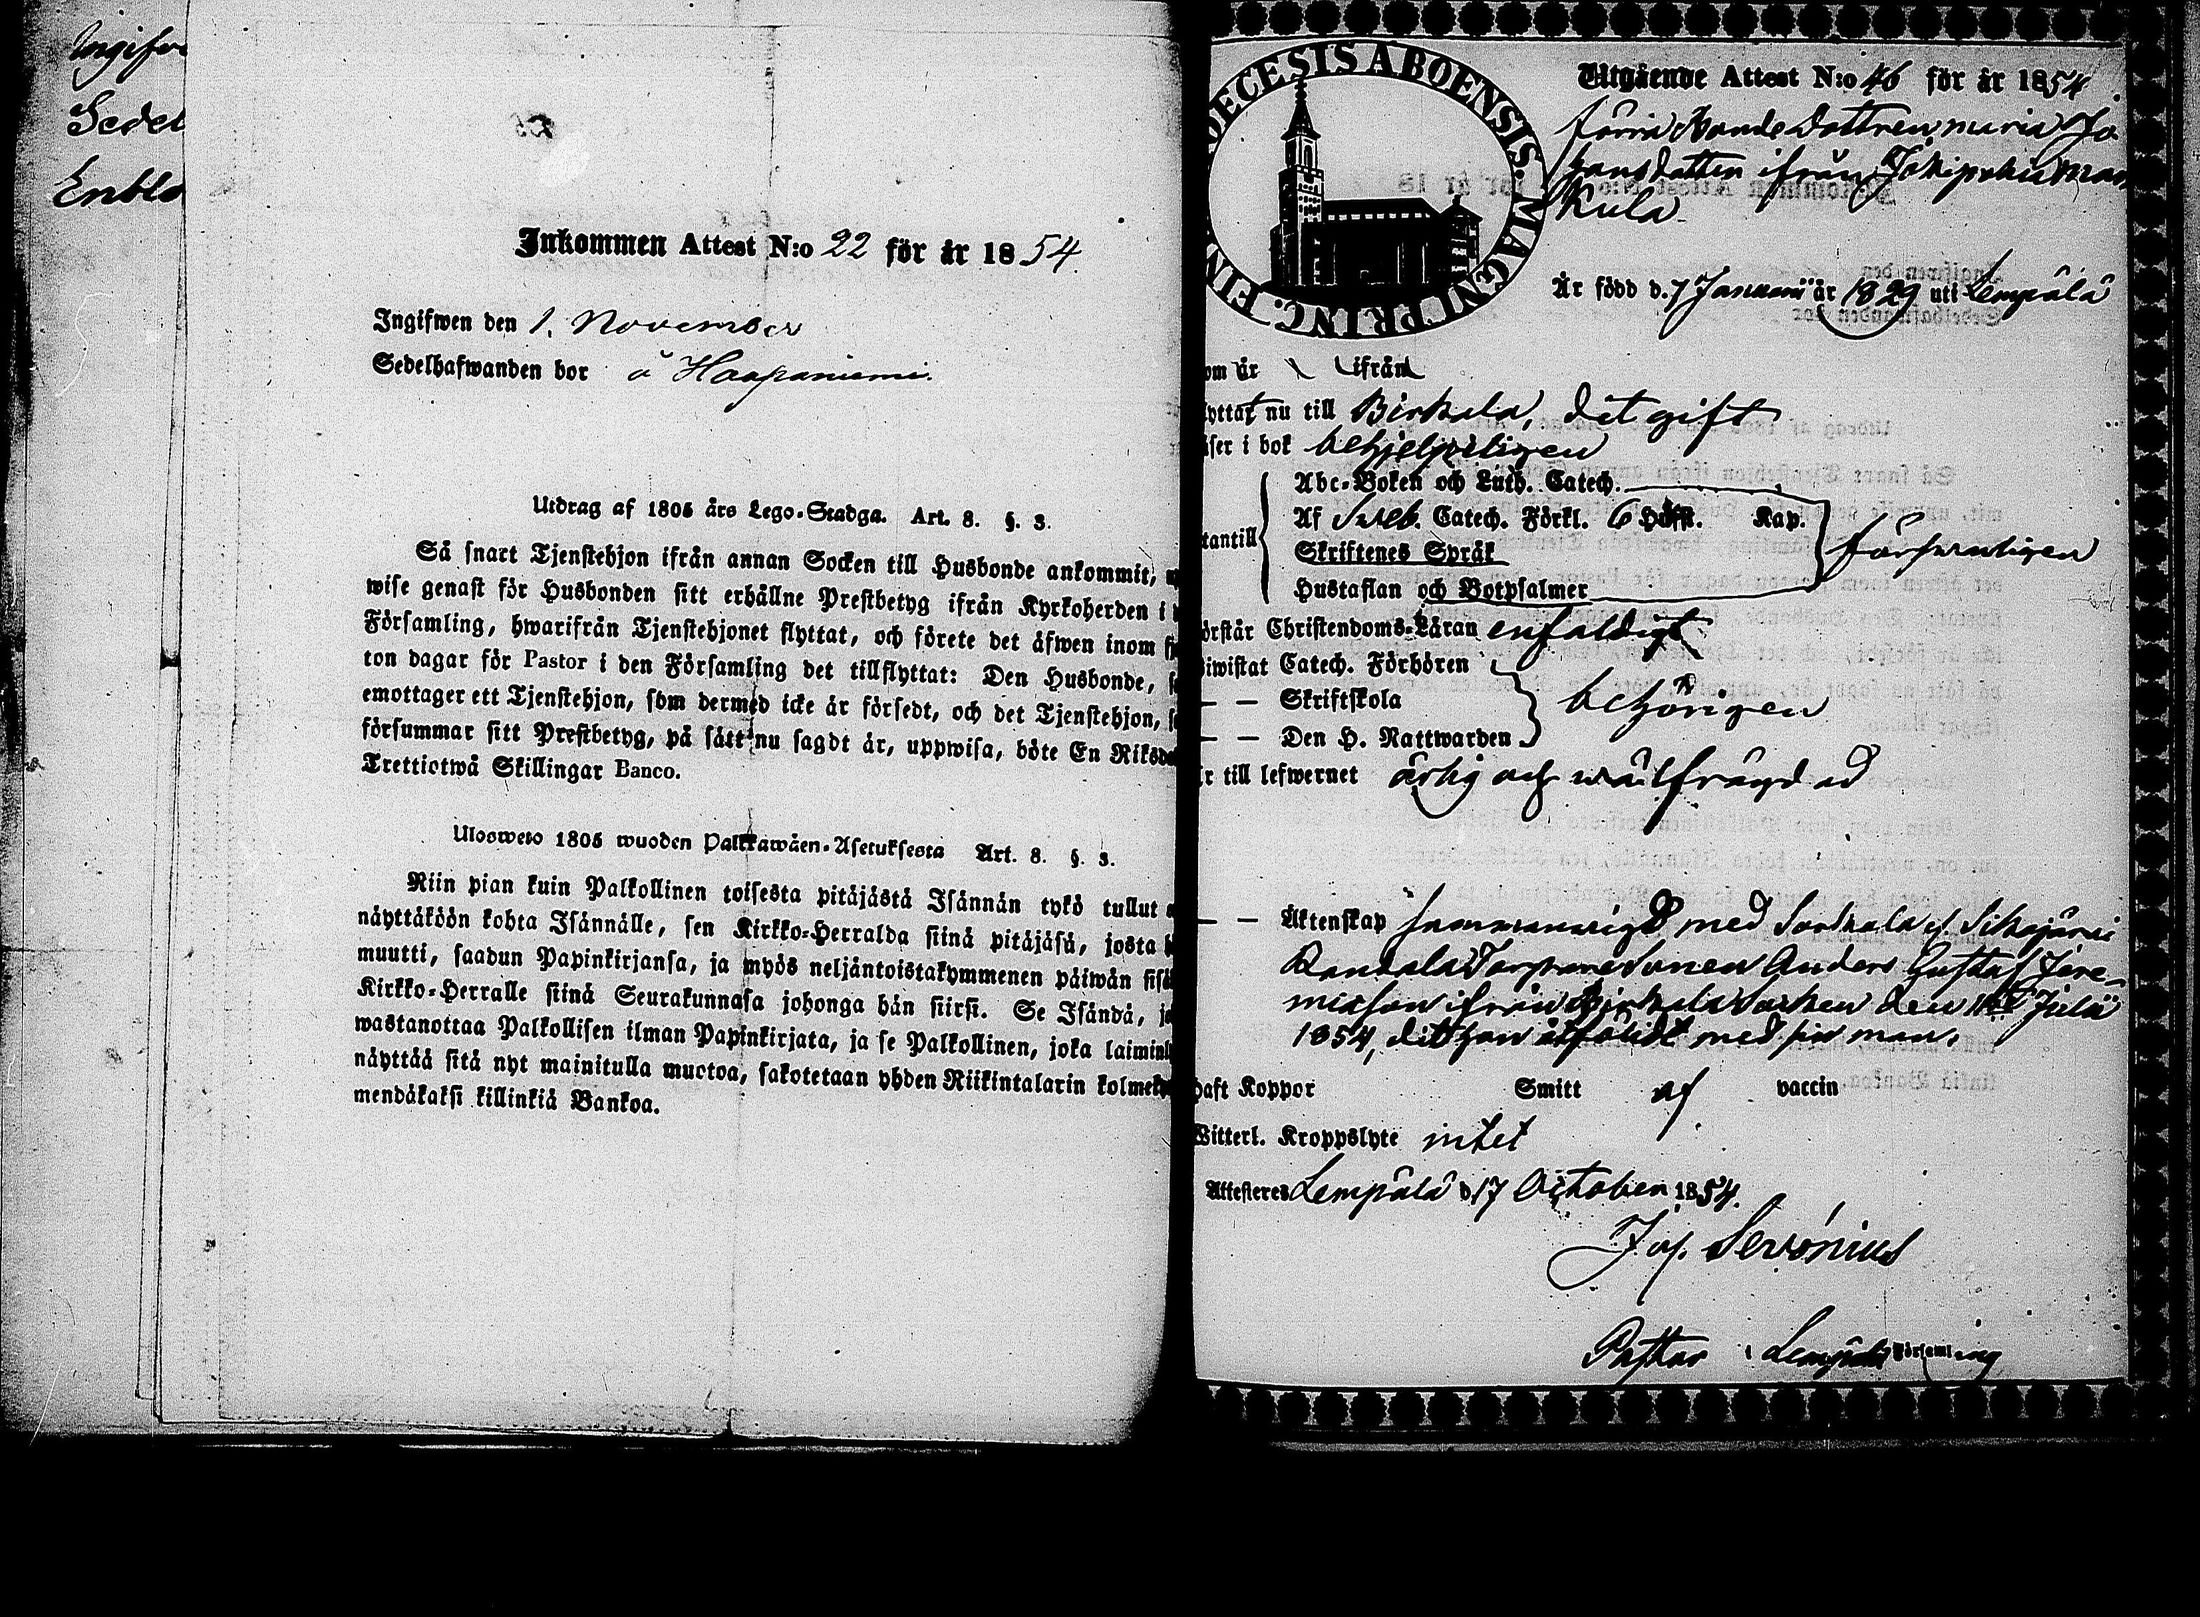 Ingifw
Sedel
Enklo
Inkommen Attest N:o 22 för år 1854.
Ingifwen den 1. November
Sedelhafwanden bor å Haapaniemi.
Utdrag af 1805 års Lego-Stadga. Art. 8. §. 3.
Så snart Tjenstehjon ifrån annan Socken till Husbonde ankommit,
wise genast för Husbonden sitt erhållne Prestbetyg ifrån Kyrkoherden i
Församling, hwarifrån Tjenstehjonet flyttat, och förete det äfwen inom
ton dagar för Pastor i den Församling det tillflyttat: Den Husbonde,
emottager ett Tjenstehjon, som dermed icke är försedt, och det Tjenstehjon,
försummar sitt Prestbetyg, på sätt nu sagdt är, uppwisa, böte En Riksda
Trettiotwå Skillingar Banco.
Ulosweto 1805 wuoden Palkkawäen-Asetuksesta Art. 8. §. 3.
Niin pian kuin Palkollinen toisesta pitäjästä Isännän tykö tullut
näyttäköön kohta Isännälle, sen Kirkko-Herralda siinä pitäjäsä, josta
muutti, saadun Papinkirjansa, ja myös neljäntoistakymmenen päiwän sisä
Kirkko-Herralle siinä Seurakunnasa johonga hän siirsi. Se Isändä,
wastanottaa Palkollisen ilman Papinkirjata, ja se Palkollinen, joka laimin
näyttää sitä nyt mainitulla muotoa, sakotetaan yhden Riikintalarin kolme
mendäkaksi killinkiä Bankoa.
DIOECESIS ABOENSIS. MAGNI PRINC. FIN
Utgående Attest N:o 46 för år 1854.
förra Bonde Dottren Maria Jo
hansdotter ifrån
kula
Är född d. 7 Januarii år 1829 uti Lempälä
om är ifrån
lyttat nu till Birkala, dit gift
äser i bok behjelpeligen
Abc-Boken och Luth. Catech.
Af Sveb. Catech. Förkl. 6 Hufst. Kap.
tantill Skriftenes Språk försvarligen
Hustaflan och Botpsalmer
örstår Christendoms-Läran enfaldigt
iwistat Catech. Förhören
— — Skriftskola behörigen
— — Den H. Nattwarden
r till lefwernet ärlig och wälfrägdad
— — Äktenskap sammanvigd med Sorkala Sikojärvi
Torpare Sonen Anders Gustaf Jere-
miasson ifrån Birkala Socken den Julii
1854, dit hon åtföljdt med sin man.
Haft Koppor Smitt af vaccin
Witterl. Kroppslyte intet
Attesteres Lempälä d. 17 October 1854.
Jos. Servonius
Pastor i Lempälä Församling